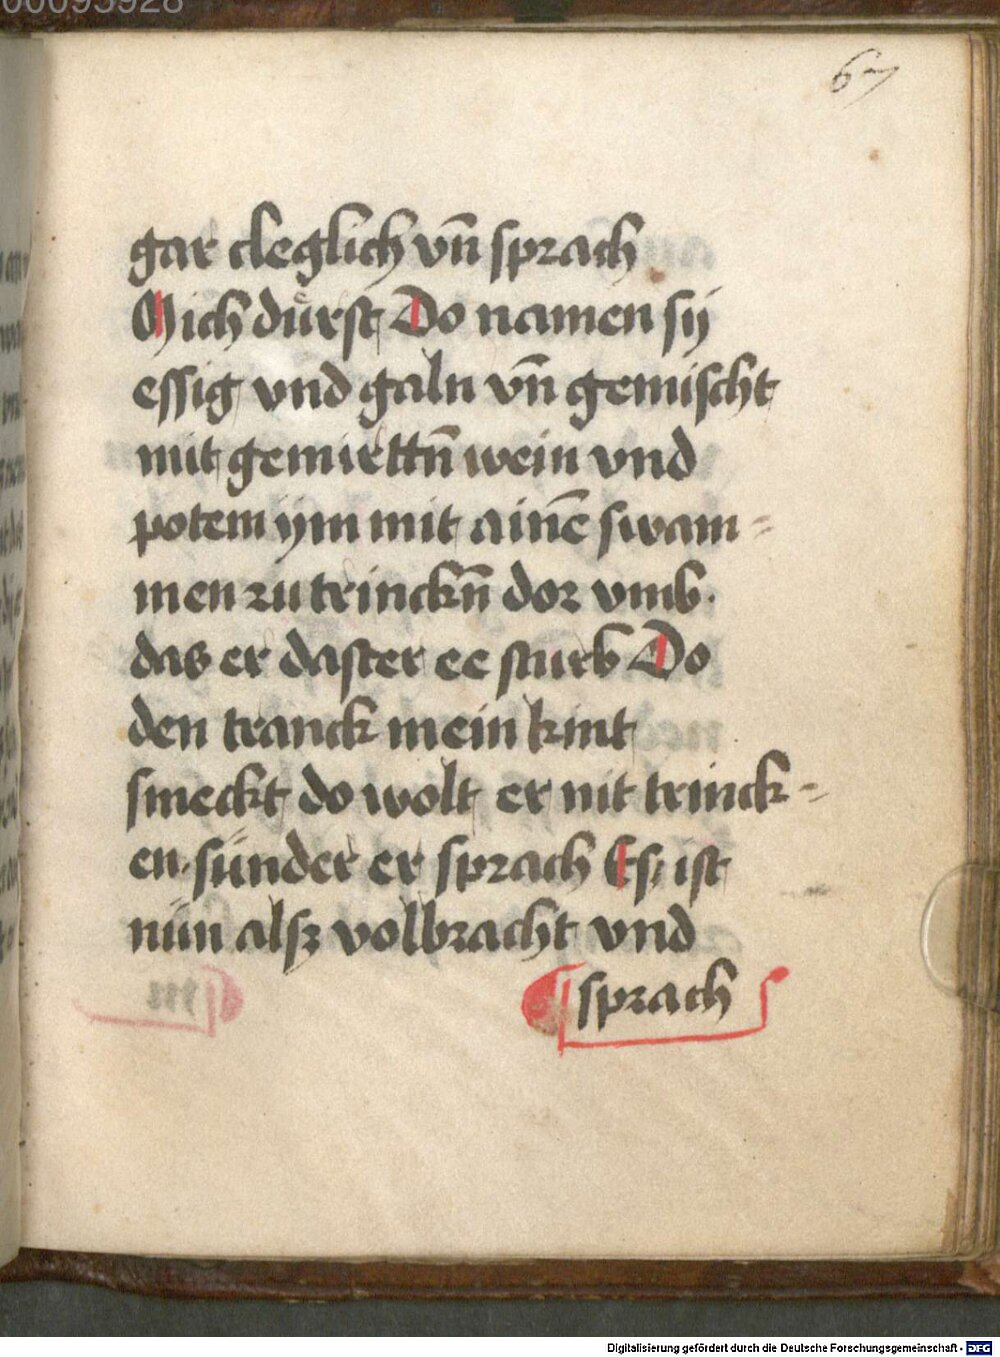 67
gar cleglich vn̄ sprach
Mich dürst Do namen sÿ
essig vnd galn vn̄ gemischt
mit gemirttn̄ wein vnd
potem ÿm mit ainē swam=
men zu trinckn̄ dor vmb.
das er daster ee sturb Do
den tranck mein kint
smeckt do wolt er nit trinck=
en. sünder er sprach Es ist
nün alsz volbracht vnd
sprach
00095928
Digitalisierung gefördert durch die Deutsche Forschungsgemeinschaft - DFG